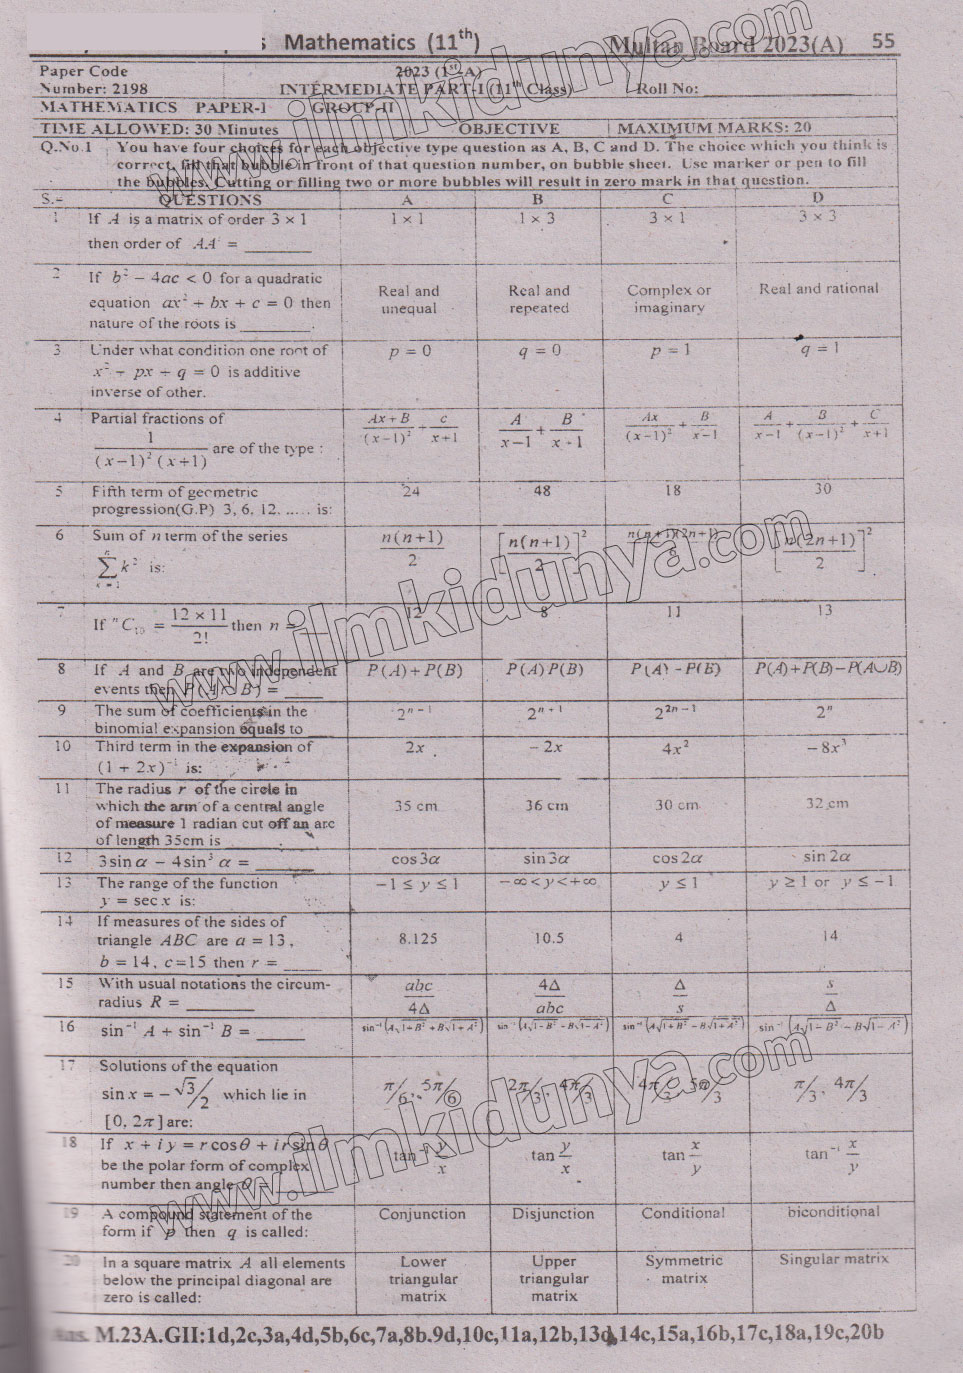 Mathematics (11th)
Multan Board 2023(A) 55
Paper Code
Number: 2198
2023 (1st-A)
INTERMEDIATE PART-I (11th Class)
Roll No: ____________
MATHEMATICS PAPER-I GROUP-II
TIME ALLOWED: 30 Minutes OBJECTIVE MAXIMUM MARKS: 20
Q.No.1 You have four choices for each objective type question as A, B, C and D. The choice which you think is
correct, fill that bubble in front of that question number, on bubble sheet. Use marker or pen to fill
the bubbles. Cutting or filling two or more bubbles will result in zero mark in that question.
S.= QUESTIONS A B C D
1 If A is a matrix of order 3 × 1
then order of AA' = ______
1 × 1 1 × 3 3 × 1 3 × 3
2 If b² − 4ac < 0 for a quadratic
equation ax² + bx + c = 0 then
nature of the roots is ______.
Real and unequal
Real and repeated
Complex or imaginary
Real and rational
3 Under what condition one root of
x² + px + q = 0 is additive
inverse of other.
p = 0 q = 0 p = 1 q = 1
4 Partial fractions of
1/((x−1)²(x+1)) are of the type :
(Ax+B)/(x−1)² + c/(x+1)
A/(x−1) + B/(x+1)
Ax/(x−1)² + B/(x−1)
A/(x−1) + B/(x−1)² + C/(x+1)
5 Fifth term of geometric
progression(G.P) 3, 6, 12, ..... is:
24 48 18 30
6 Sum of n term of the series
∑ₖ₌₁ⁿ k² is:
n(n+1)/2
[n(n+1)/2]²
n(n+1)(2n+1)/6
[n(2n+1)/2]²
7 If ⁿC₁₀ = (12 × 11)/2! then n = ___
12 8 11 13
8 If A and B are two independent
events then P(A ∩ B) = ____
P(A)+P(B) P(A)P(B) P(A) − P(B) P(A)+P(B)−P(A∪B)
9 The sum of coefficients in the
binomial expansion equals to ___
2ⁿ⁻¹ 2ⁿ⁺¹ 2²ⁿ⁻¹ 2ⁿ
10 Third term in the expansion of
(1 + 2x)⁻¹ is:
2x − 2x 4x² − 8x³
11 The radius r of the circle in
which the arm of a central angle
of measure 1 radian cut off an arc
of length 35cm is ______.
35 cm 36 cm 30 cm 32 cm
12 3sin α − 4sin³ α = ______
cos3α sin3α cos2α sin2α
13 The range of the function
y = sec x is:
−1 ≤ y ≤ 1 −∞<y<+∞ y ≤ 1 y ≥ 1 or y ≤ −1
14 If measures of the sides of
triangle ABC are a = 13,
b = 14, c=15 then r = ____
8.125 10.5 4 14
15 With usual notations the circum-
radius R = ______
abc/4Δ 4Δ/abc Δ/s s/Δ
16 sin⁻¹ A + sin⁻¹ B = _____
sin⁻¹(A√(1+B²) + B√(1+A²))
sin⁻¹(A√(1−B²) − B√(1−A²))
sin⁻¹(A√(1+B²) − B√(1+A²))
sin⁻¹(A√(1−B²) − B√(1−A²))
17 Solutions of the equation
sin x = −√3/2 which lie in
[0, 2π] are:
π/6, 5π/6
2π/3, 4π/3
4π/3, 5π/3
π/3, 4π/3
18 If x + iy = r cosθ + ir sinθ
be the polar form of complex
number then angle θ = ______
tan⁻¹ y/x
tan y/x
tan x/y
tan⁻¹ x/y
19 A compound statement of the
form if p then q is called:
Conjunction Disjunction Conditional biconditional
20 In a square matrix A all elements
below the principal diagonal are
zero is called:
Lower triangular matrix
Upper triangular matrix
Symmetric matrix
Singular matrix
Ans. M.23A.GII:1d,2c,3a,4d,5b,6c,7a,8b.9d,10c,11a,12b,13d,14c,15a,16b,17c,18a,19c,20b
www.ilmkidunya.com
www.ilmkidunya.com
www.ilmkidunya.com